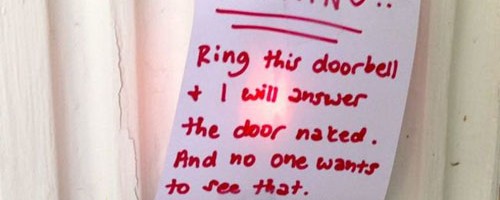 Ring this doorbell
+ I will answer
the door naked.
And no one wants
to see that.